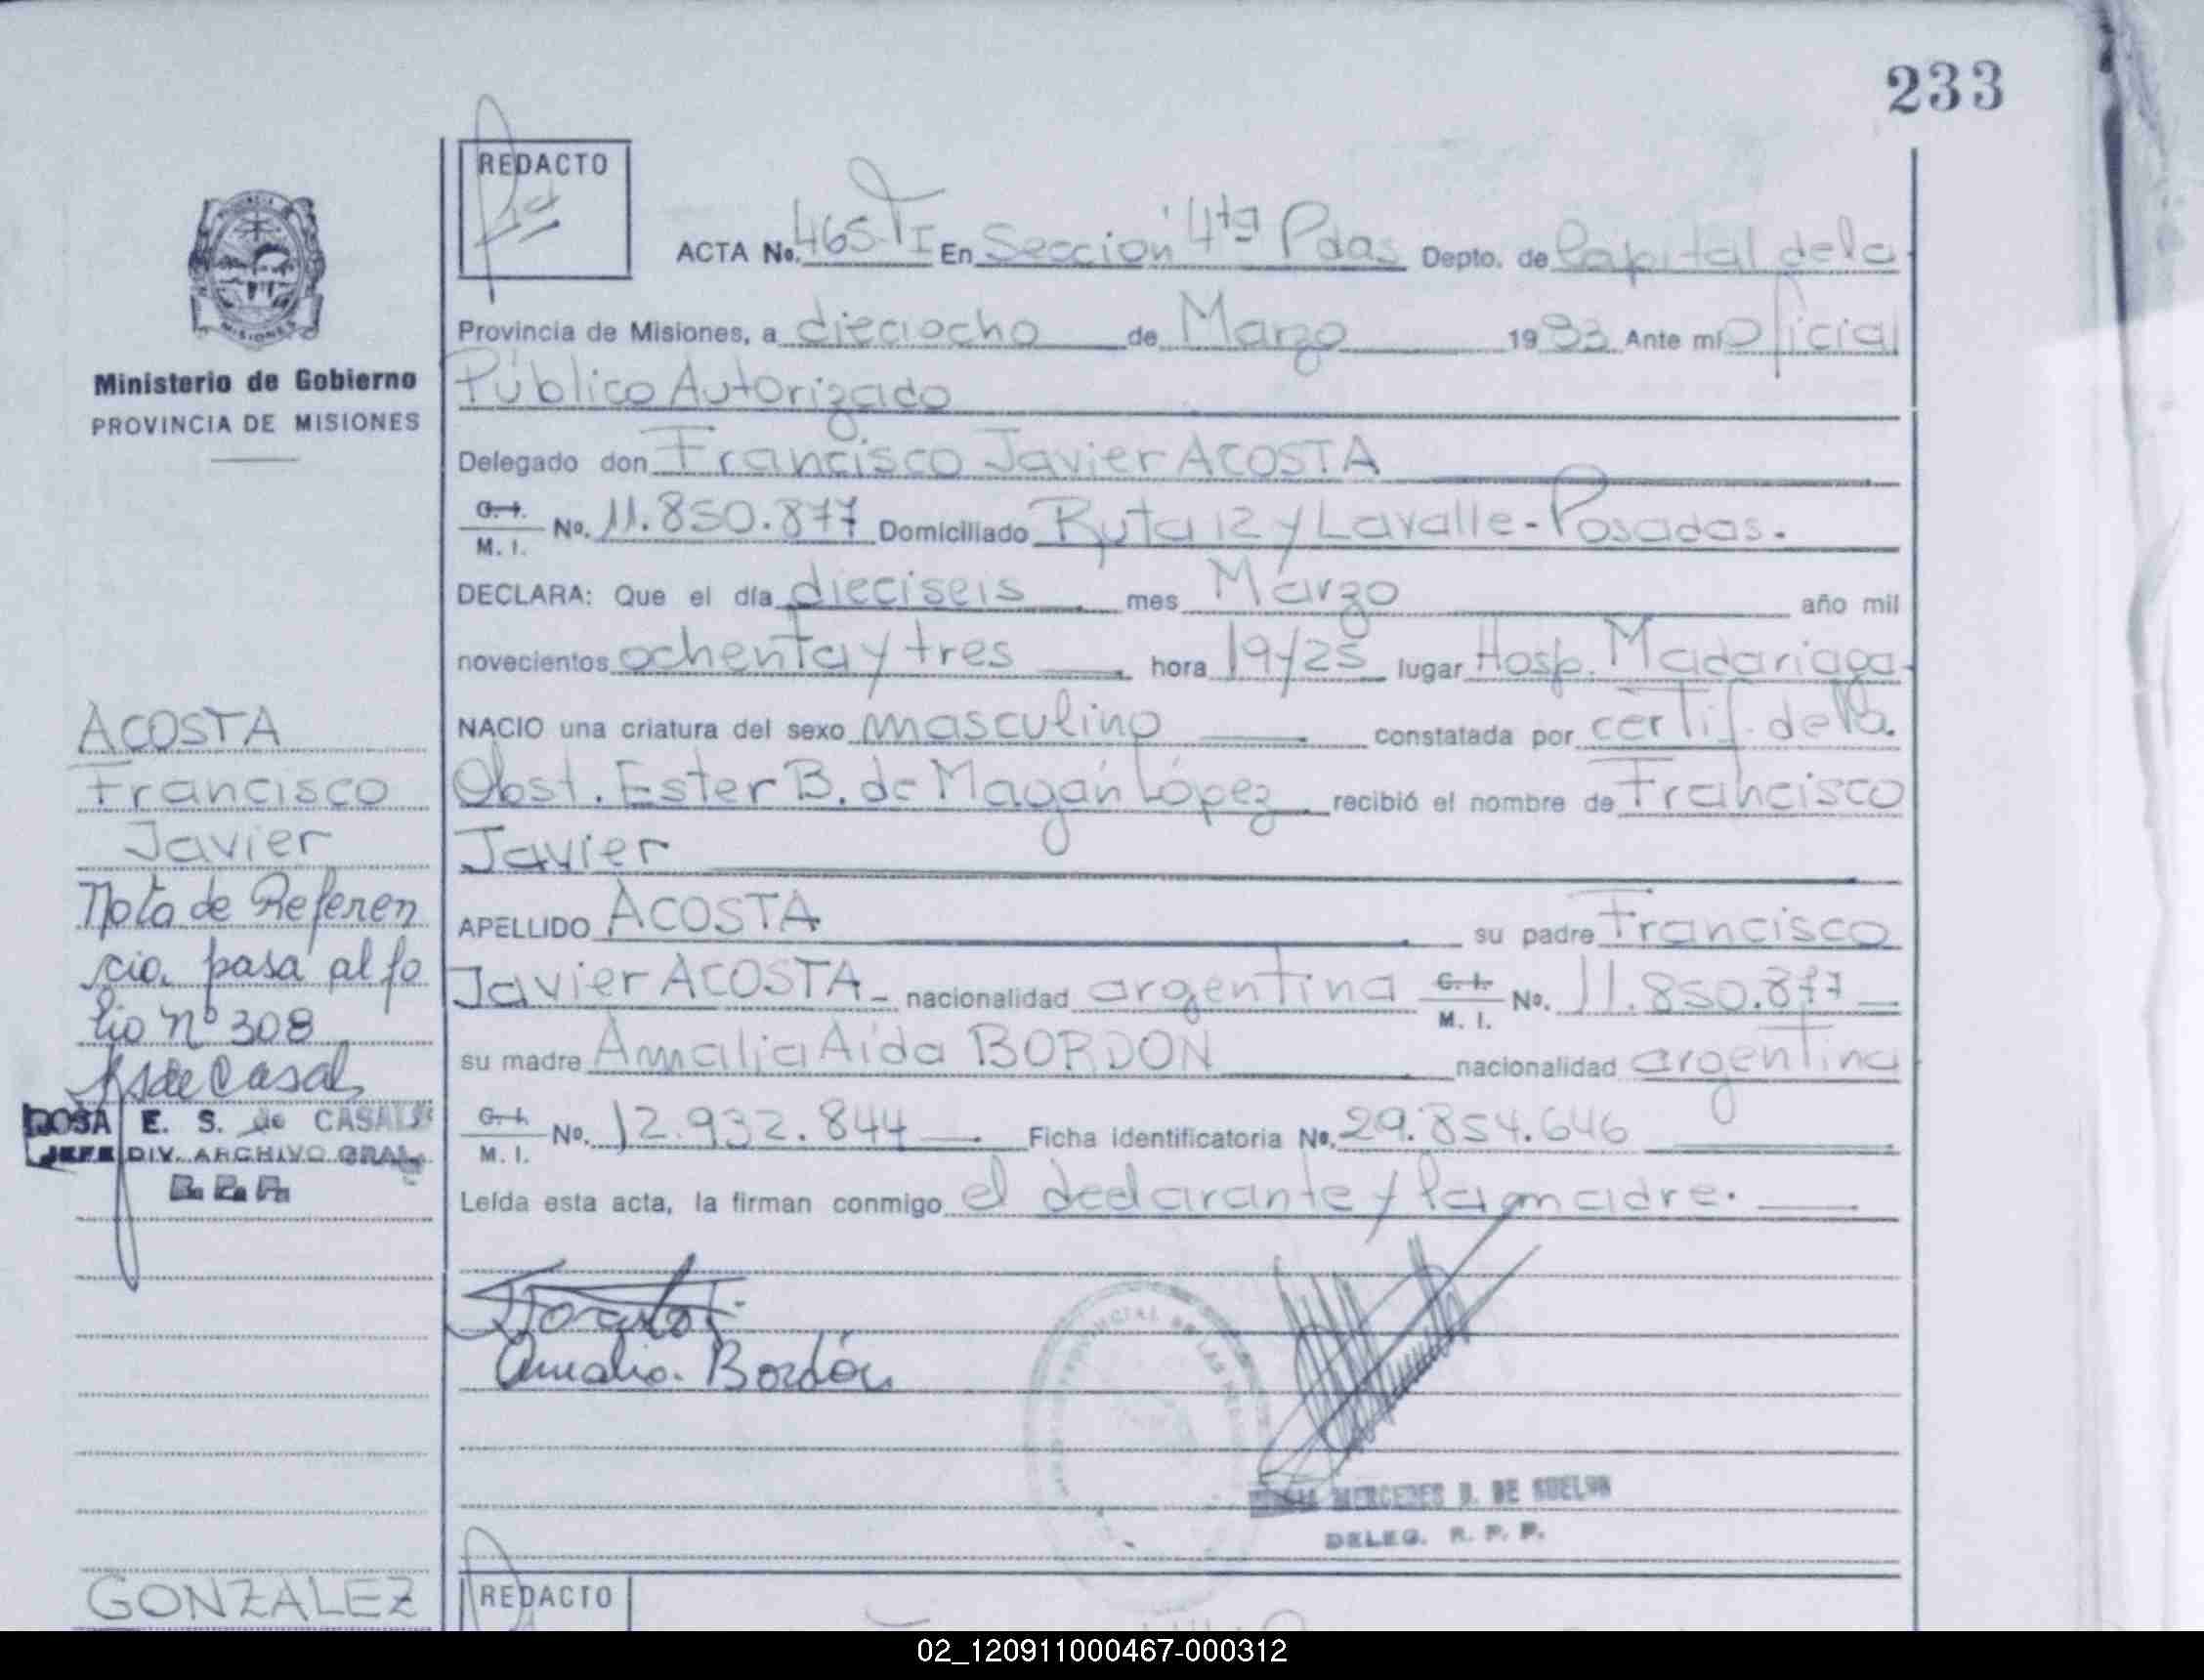 233
REDACTO
ACTA No. 465 T I En Sección 4ta Pdas Depto. de Capital dela
Provincia de Misiones, a dieciocho de Marzo 1983 Ante mí Oficial
Público Autorizado
Delegado don Francisco Javier ACOSTA
C. I.
M. I. No. 11.850.877 Domiciliado Ruta 12 y Lavalle - Posadas.
DECLARA: Que el día dieciseis mes Marzo año mil
novecientos ochenta y tres hora 19/25 lugar Hosp. Madariaga
NACIO una criatura del sexo masculino constatada por certif. de la
Obst. Ester B. de Magán López recibió el nombre de Francisco
Javier
APELLIDO ACOSTA su padre Francisco
Javier ACOSTA - nacionalidad argentina C. I. M. I. No. 11.850.877
su madre Amalia Aida BORDON nacionalidad argentina
C. I.
M. I. No. 12.932.844 Ficha identificatoria No. 29.854.646
Leída esta acta, la firman conmigo el declarante y la madre.
Amalia Bordón
MERCEDES
DELEG. R. P. P.
REDACTO
PROVINCIA DE
MISIONES
Ministerio de Gobierno
PROVINCIA DE MISIONES
ACOSTA
Francisco
Javier
Nota de Referen
cia pasa al fo
lio nº 308
RSde Casal
ROSA E. S. de CASALS
JEFE DIV. ARCHIVO GRAL.
R. P. P.
GONZALEZ
02_120911000467-000312